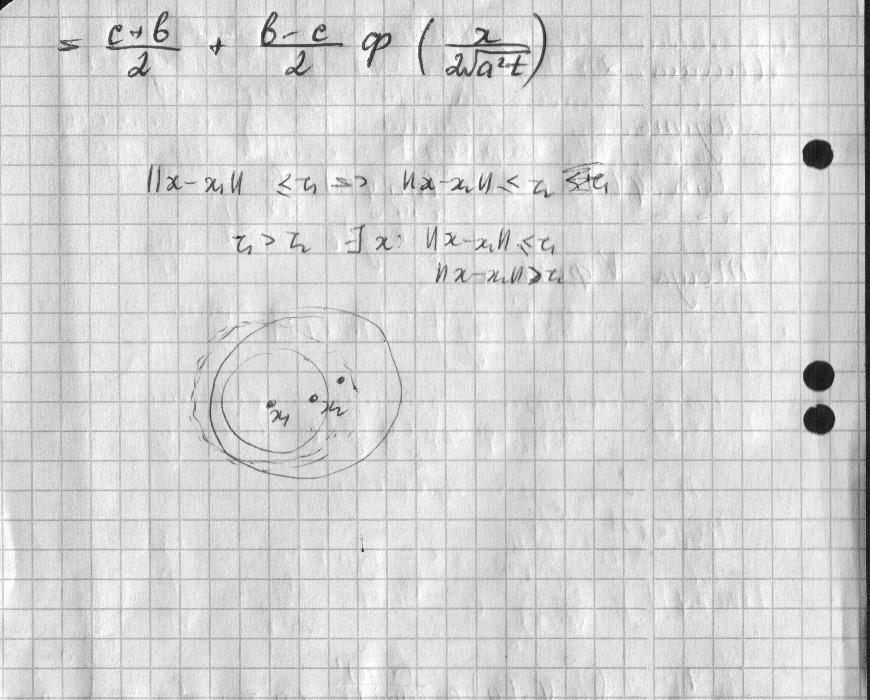 = (c+b)/2 + (b-c)/2 Ф (x/(2√(a²t)))
||x-x₁|| ≤ r₁ => ||x-x₂|| ≤ r₂
r₁ > r₂ ∃ x: ||x-x₁|| ≤ r₁
||x-x₂|| > r₂
x₁ x₂